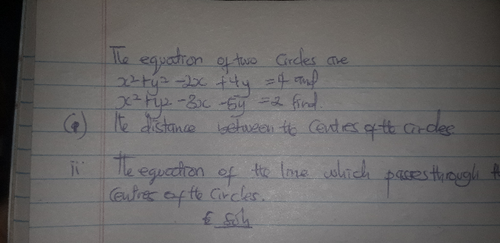 The equation of two circles are
x²+y² -2x +4y =4 and
x²+y² -8x -6y =2 find
(i) the distance between the centres of the circles
ii The equation of the line which passes through
centres of the circles.
Soln